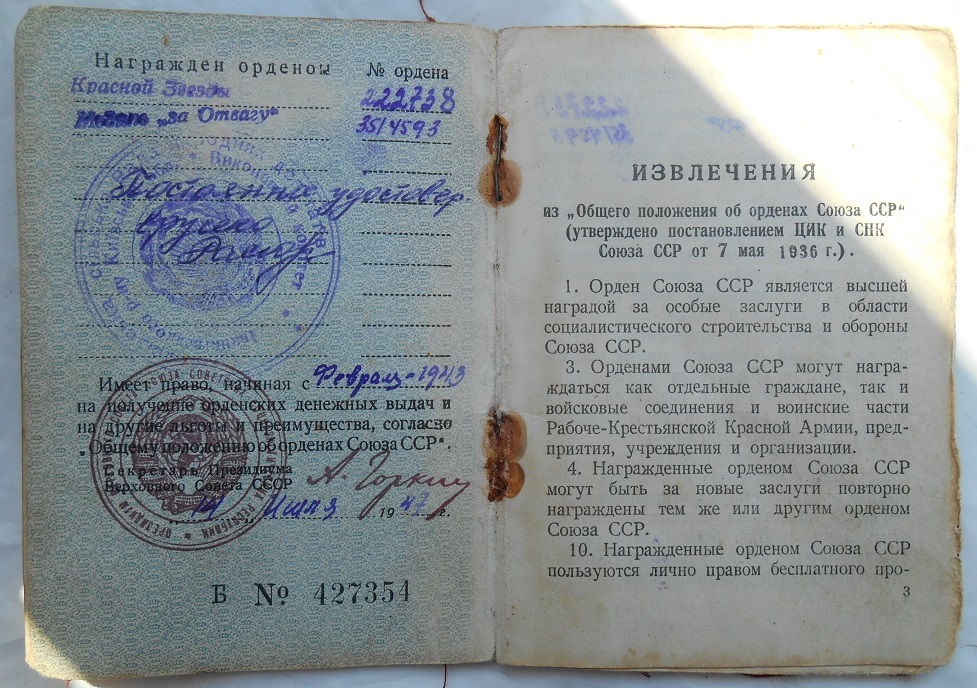 Награжден орденом № ордена
Красной Звезды 222738
Медаль „За Отвагу“ 3514593
Постоянное удостовер.
вручено
Имеет право, начиная с Февраль-1943
на получение орденских денежных выдач и
на другие льготы и преимущества, согласно
„Общему положению об орденах Союза ССР“.
Секретарь Президиума
Верховного Совета СССР А. Горкин
14 Июля 1947 г.
Б № 427354
ИЗВЛЕЧЕНИЯ
из „Общего положения об орденах Союза ССР“
(утверждено постановлением ЦИК и СНК
Союза ССР от 7 мая 1936 г.).
1. Орден Союза ССР является высшей
наградой за особые заслуги в области
социалистического строительства и обороны
Союза ССР.
3. Орденами Союза ССР могут награ-
ждаться как отдельные граждане, так и
войсковые соединения и воинские части
Рабоче-Крестьянской Красной Армии, пред-
приятия, учреждения и организации.
4. Награжденные орденом Союза ССР
могут быть за новые заслуги повторно
награждены тем же или другим орденом
Союза ССР.
10. Награжденные орденом Союза ССР
пользуются лично правом бесплатного про-
3